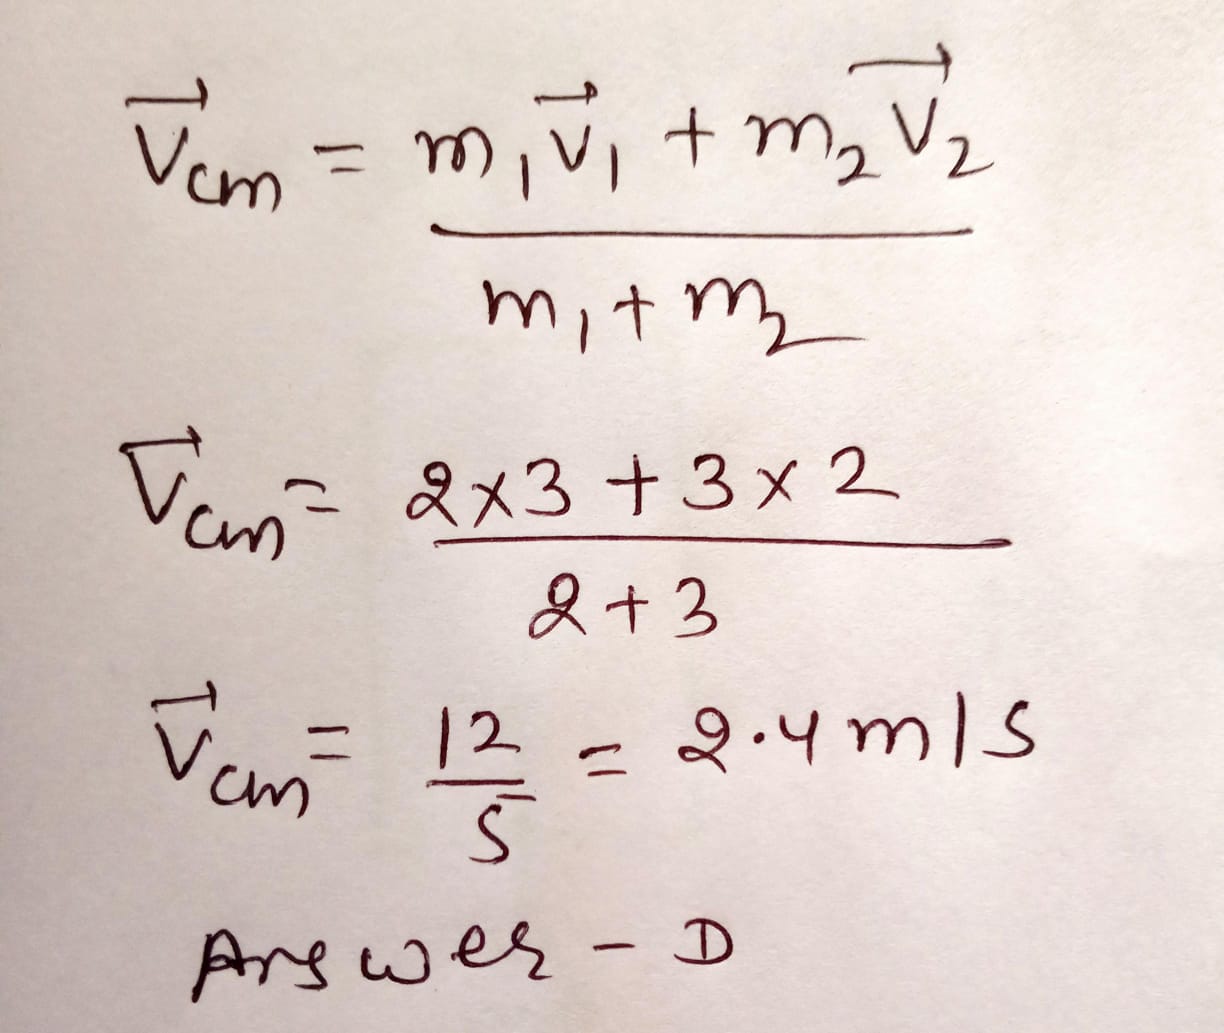 V⃗cm = m₁v⃗₁ + m₂v⃗₂
m₁+m₂
V⃗cm = 2×3 + 3×2
2+3
V⃗cm = 12 = 2.4 m/s
5
Answer - D